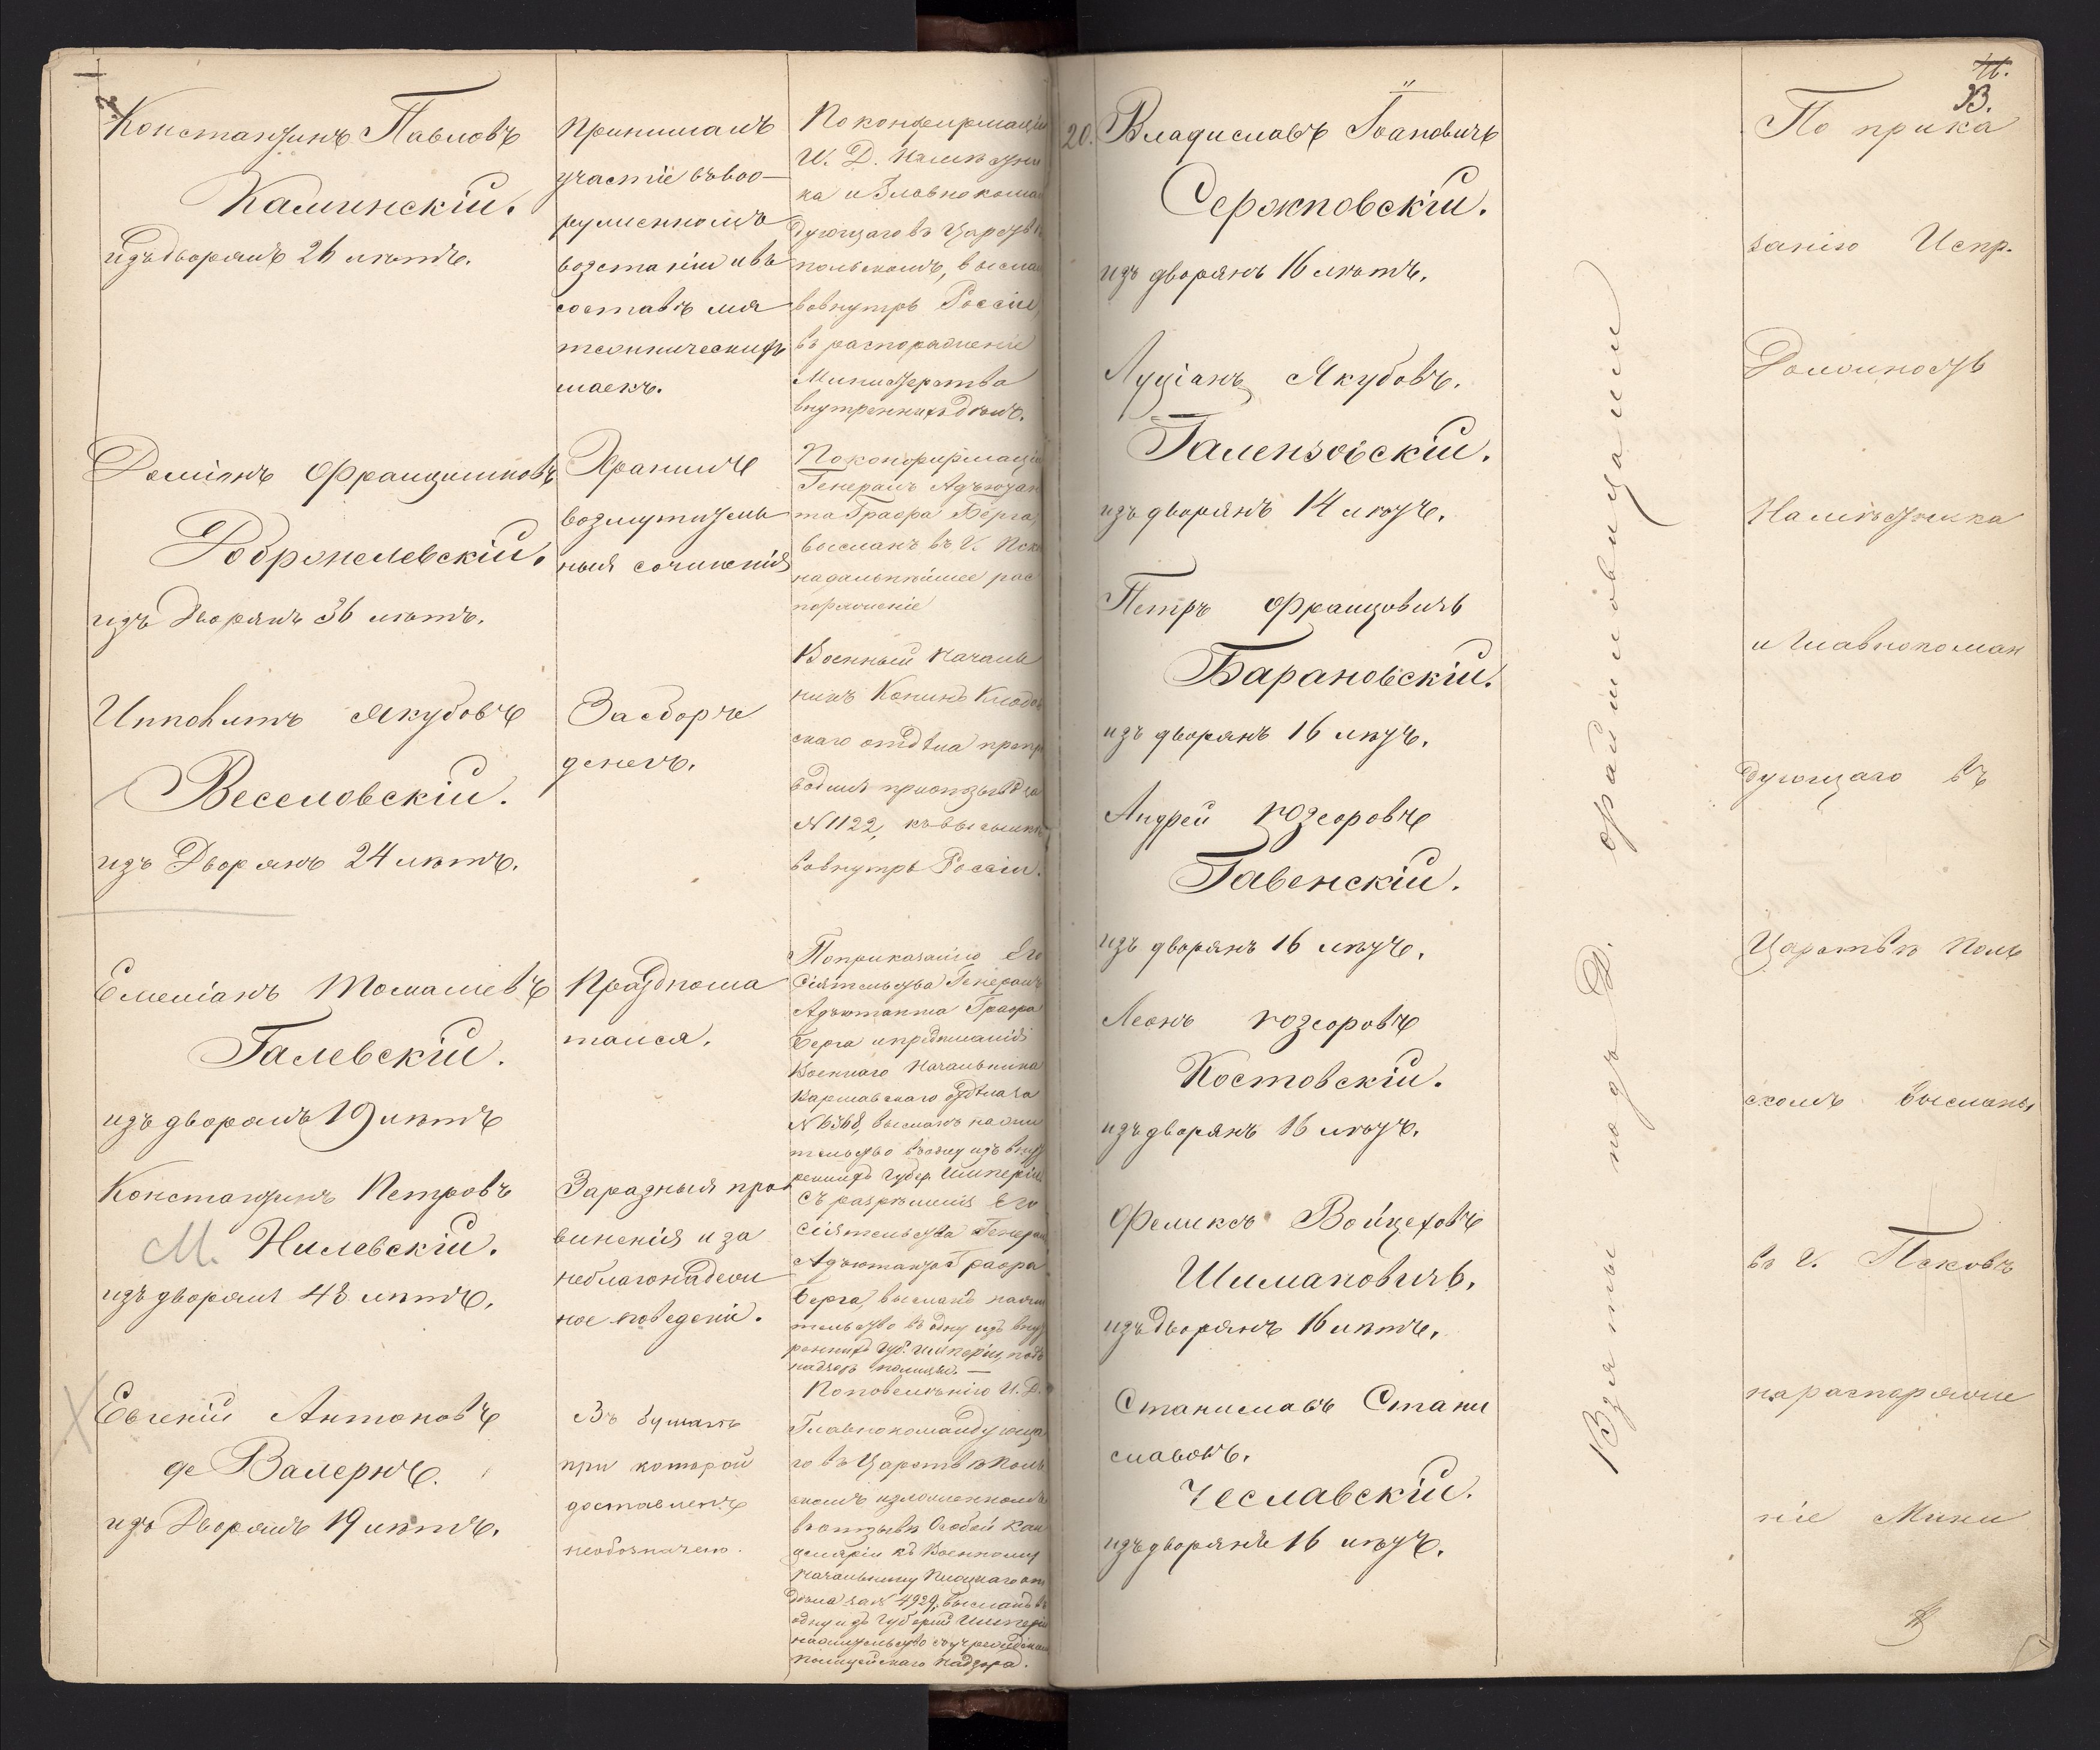 Константинъ Павловъ
Каминскій.
изъ дворянъ 26 лѣтъ.
Принималъ
участіе въ воо-
руженномъ
возстаніи и въ
составѣ мя
тежническихъ
шаекъ.
По конфирмаціи
И. Д. Намѣстни
ка и Главнокоман
дующаго въ Царствѣ
польскомъ, выслан
вовнутрь Россіи,
въ распоряженіе
Министерства
внутреннихъ дѣлъ.
Даміянъ Францишковъ
Добржелевскій.
изъ Дворянъ 36 лѣтъ.
Хранилъ
возмутитель
ныя сочиненія
По конфирмаціи
Генералъ Адъютан
та Графа Берга,
высланъ въ Г. Пск
на дальнѣйшее рас
поряженіе
Ипполитъ Якубовъ
Веселовскій.
изъ Дворянъ 24 лѣтъ.
За сборъ
денегъ.
Военный Началь
никъ Конинo
скаго отдѣла препро
водилъ при отзывѣ за
№ 1122, къ высылкѣ
вовнутрь Россіи.
Емеліанъ Томашевъ
Галевскій.
изъ дворянъ 19 лѣтъ
Празднoша
тался.
По приказанію Его
Сіятельства Генералъ
Адъютанта Графа
Берга и предписанія
Военнаго Начальника
Варшавскаго отдѣла за
№ 6368, высланъ на жи
тельство въ одну изъ внут
реннихъ Губер. Имперіи
Константинъ Петровъ
М. Нилевскій.
изъ дворянъ 48 лѣтъ.
За разныя про
виненія и за
неблагонадеж
ное поведеніе.
съ разрѣшенія Его
Сіятельства Генералъ
Адъютанта Графа
Берга, высланъ на жи
тельство въ одну изъ внут
реннихъ Губ. Имперіи, подъ
надзоръ полиціи. —
Евгеній Антоновъ
де Валернъ.
изъ Дворянъ 19 лѣтъ.
Въ бумагѣ
при которой
доставленъ
необозначено.
По повелѣнію И. Д.
Главнокомандующа
го въ Царствѣ Поль
скомъ изложенномъ
въ отзывѣ Особой Кан
целяріи къ Военному
Начальнику Плоцкаго от
дѣла за № 4929, высланъ въ
одну изъ Губерній Имперіи
на жительство съ учрежденіемъ
полицейскаго надзора.
33.
20. Владиславъ Ивановичъ
Серокповскій.
изъ дворянъ 16 лѣтъ.
Луціанъ Якубовъ.
Галензовскій.
изъ дворянъ 14 лѣтъ.
Петръ Францовичъ
Барановскій.
изъ дворянъ 16 лѣтъ.
Андрей Юзефовъ
Гавенскій.
изъ дворянъ 16 лѣтъ.
Леонъ Юзефовъ
Костовскій.
изъ дворянъ 16 лѣтъ.
Феликсъ Войцеховъ
Шимановичъ.
изъ дворянъ 16 лѣтъ.
Станиславъ Стани
славовъ.
Чеславскій.
изъ дворянъ 16 лѣтъ.
Взяты подъ Д. фаишловицами
По прика
занію Испр.
Должность
Намѣстника
и Главнокоман
дующаго въ
Царствѣ Поль
скомъ высланы
въ Г. Псковъ
на распоряже
ніе Мини